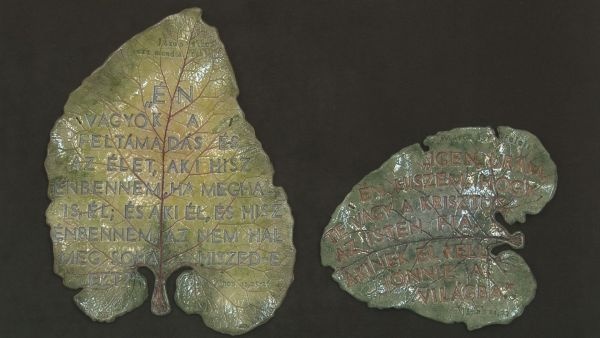 Jézus
ezt mondta
„ÉN
VAGYOK A
FELTÁMADÁS ÉS
AZ ÉLET, AKI HISZ
ÉNBENNEM, HA MEGHAL
IS ÉL; ÉS AKI ÉL, ÉS HISZ
ÉNBENNEM, AZ NEM HAL
MEG SOHA. HISZED-E
EZT?"
IGEN, URAM,
ÉN HISZEM, HOGY
TE VAGY A KRISZTUS,
AZ ISTEN FIA,
AKINEK EL KELL
JÖNNIE A
VILÁGBA"